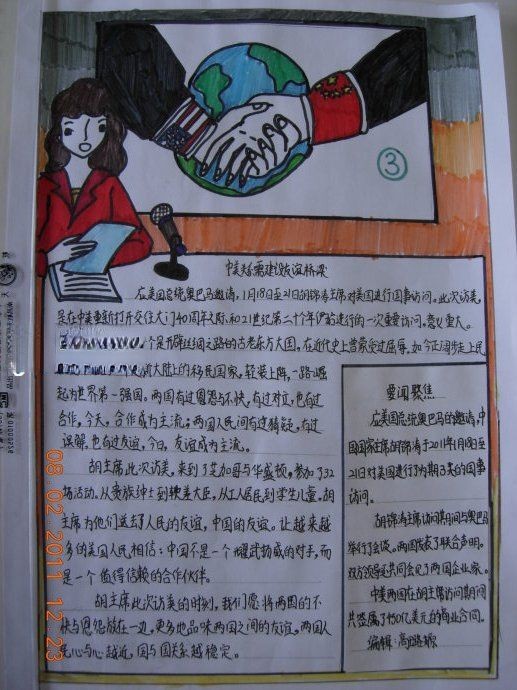 ③
中美杰需建设友谊桥梁
应美国总统奥巴马邀请,1月18日至21日胡锦涛主席对美国进行国事访问。此次访美,
是在中美重新打开交往大门40周年之际、和21世纪第二个十年伊始进行的一次重要访问,意义重大。
个是丝绸之路的古老东方大国,在近代史上曾蒙受过屈辱,如今正阔步走上民
大陆上的移民国家,轻装上阵,一路崛
起为世界第一强国。两国有过圆答与不快,有过对立,也有
合作,今天,合作成为主流;两国人民间有过猜疑,有过
误解,也有过友谊,今日,友谊成为主流。
胡主席此次访美,来到了芝加哥与华盛顿,参加了32
场活动。从贵族绅士到大臣,从工人居民到学生儿童,胡
主席为他们送去了人民的友谊,中国的友谊。让越来越
多的美国人民相信:中国不是一个耀武扬威的对手,而
是一个值得信赖的合作伙伴。
胡主席此次访美的时刻,我们愿将两国的不
快与恩怨放在一边,更多地品味两国之间的友谊。两国人
民心与心越近,国与国关系越稳定。
要闻聚焦
应美国总统奥巴马的邀请,中
国国家主席胡锦涛于2011年1月18日至
21日对美国进行了为期3天的国事
访问。
胡锦涛主席访问期间与奥巴马
举行了会谈。两国发表了联合声明。
双方领导还共同会见了两国企业家。
中美两国在胡主席访问期间
共签属了450亿美元的商业合同。
编辑:高
08 02 2011 12 23